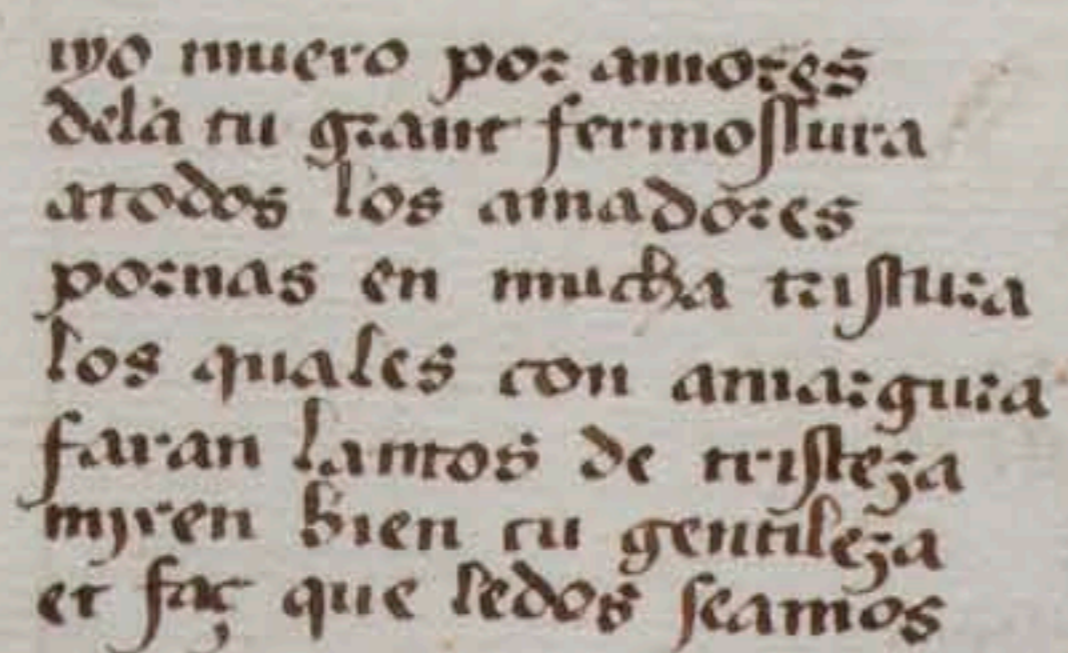 uyo muero por amores
dela tu grant fermossura
atodos los amadores
pornas en mucha tristura
los quales con amargura
faran lantos de tristeza
myren bien tu gentileza
et faç que ledos seamos